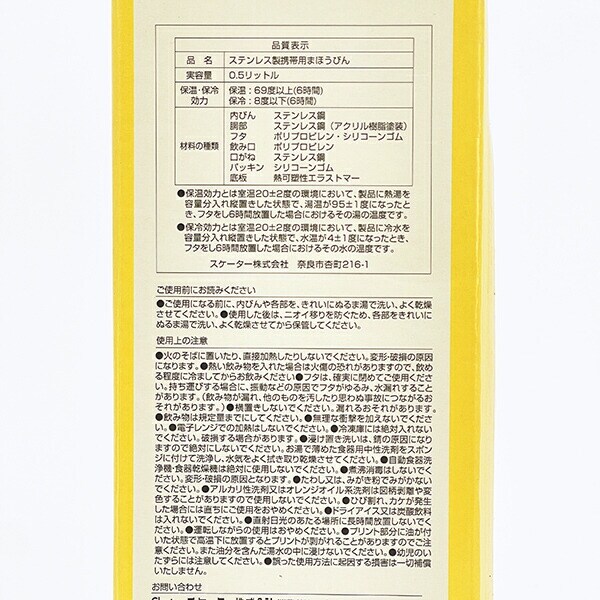 品質表示
品　名　ステンレス製携帯用まほうびん
実容量　0.5リットル
保温・保冷効力　保温：69度以上(6時間)
保冷：8度以下(6時間)
材料の種類　内びん　ステンレス鋼
胴部　ステンレス鋼（アクリル樹脂塗装）
フタ　ポリプロピレン・シリコーンゴム
飲み口　ポリプロピレン
口がね　ステンレス鋼
パッキン　シリコーンゴム
底板　熱可塑性エラストマー
●保温効力とは室温20±2度の環境において、製品に熱湯を
容量分入れ縦置きした状態で、湯温が95±1度になったと
き、フタをし6時間放置した場合におけるその湯の温度です。
●保冷効力とは室温20±2度の環境において、製品に冷水を
容量分入れ縦置きした状態で、水温が4±1度になったとき、
フタをし6時間放置した場合におけるその水の温度です。
スケーター株式会社　奈良市杏町216-1
ご使用前にお読みください
●ご使用になる前に、内びんや各部を、きれいにぬるま湯で洗い、よく乾燥
させてください。●使用した後は、ニオイ移りを防ぐため、各部をきれいに
ぬるま湯で洗い、よく乾燥させてから保管してください。
使用上の注意
●火のそばに置いたり、直接加熱したりしないでください。変形・破損の原因
になります。●熱い飲み物を入れた場合は火傷の恐れがありますので、飲め
る程度に冷ましてからお飲みください●フタは、確実に閉めてご使用くださ
い。持ち運びする場合に、振動などの原因でフタがゆるみ、水漏れすること
があります。（飲み物が漏れ、他のものを汚したり思わぬ事故につながるお
それがあります。）●横置きしないでください。漏れるおそれがあります。
●飲み物は規定量までにしてください。●無理な衝撃を加えないでください。
●電子レンジでの加熱はしないでください。●冷凍庫には絶対入れない
でください。破損する場合があります。●浸け置き洗いは、錆の原因になり
ますので絶対にしないでください。お湯で薄めた食器用中性洗剤をスポン
ジに付けて洗浄し、水気をよく拭き取り乾燥させてください。●自動食器洗
浄機・食器乾燥機は絶対に使用しないでください。●煮沸消毒はしないでく
ださい。変形・破損の原因となります。●たわし又は、みがき粉でみがかない
でください。●アルカリ性洗剤又はオレンジオイル系洗剤は図柄剥離や変
色することがありますので使用しないでください。●ひび割れ、カケが発生
した場合には直ちにご使用をおやめください。●ドライアイス又は炭酸飲料
は入れないでください。●直射日光のあたる場所に長時間放置しないでくだ
さい。●運転しながらの使用はおやめください。●プリント部分に油が付
いた状態で高温下に放置するとプリントが剥がれることがありますのでご注
意ください。また油分を含んだ湯水の中に浸けないでください。●幼児のい
たずらには注意してください。●誤った使用方法に起因する損害は一切補償
いたしません。
お問い合わせ